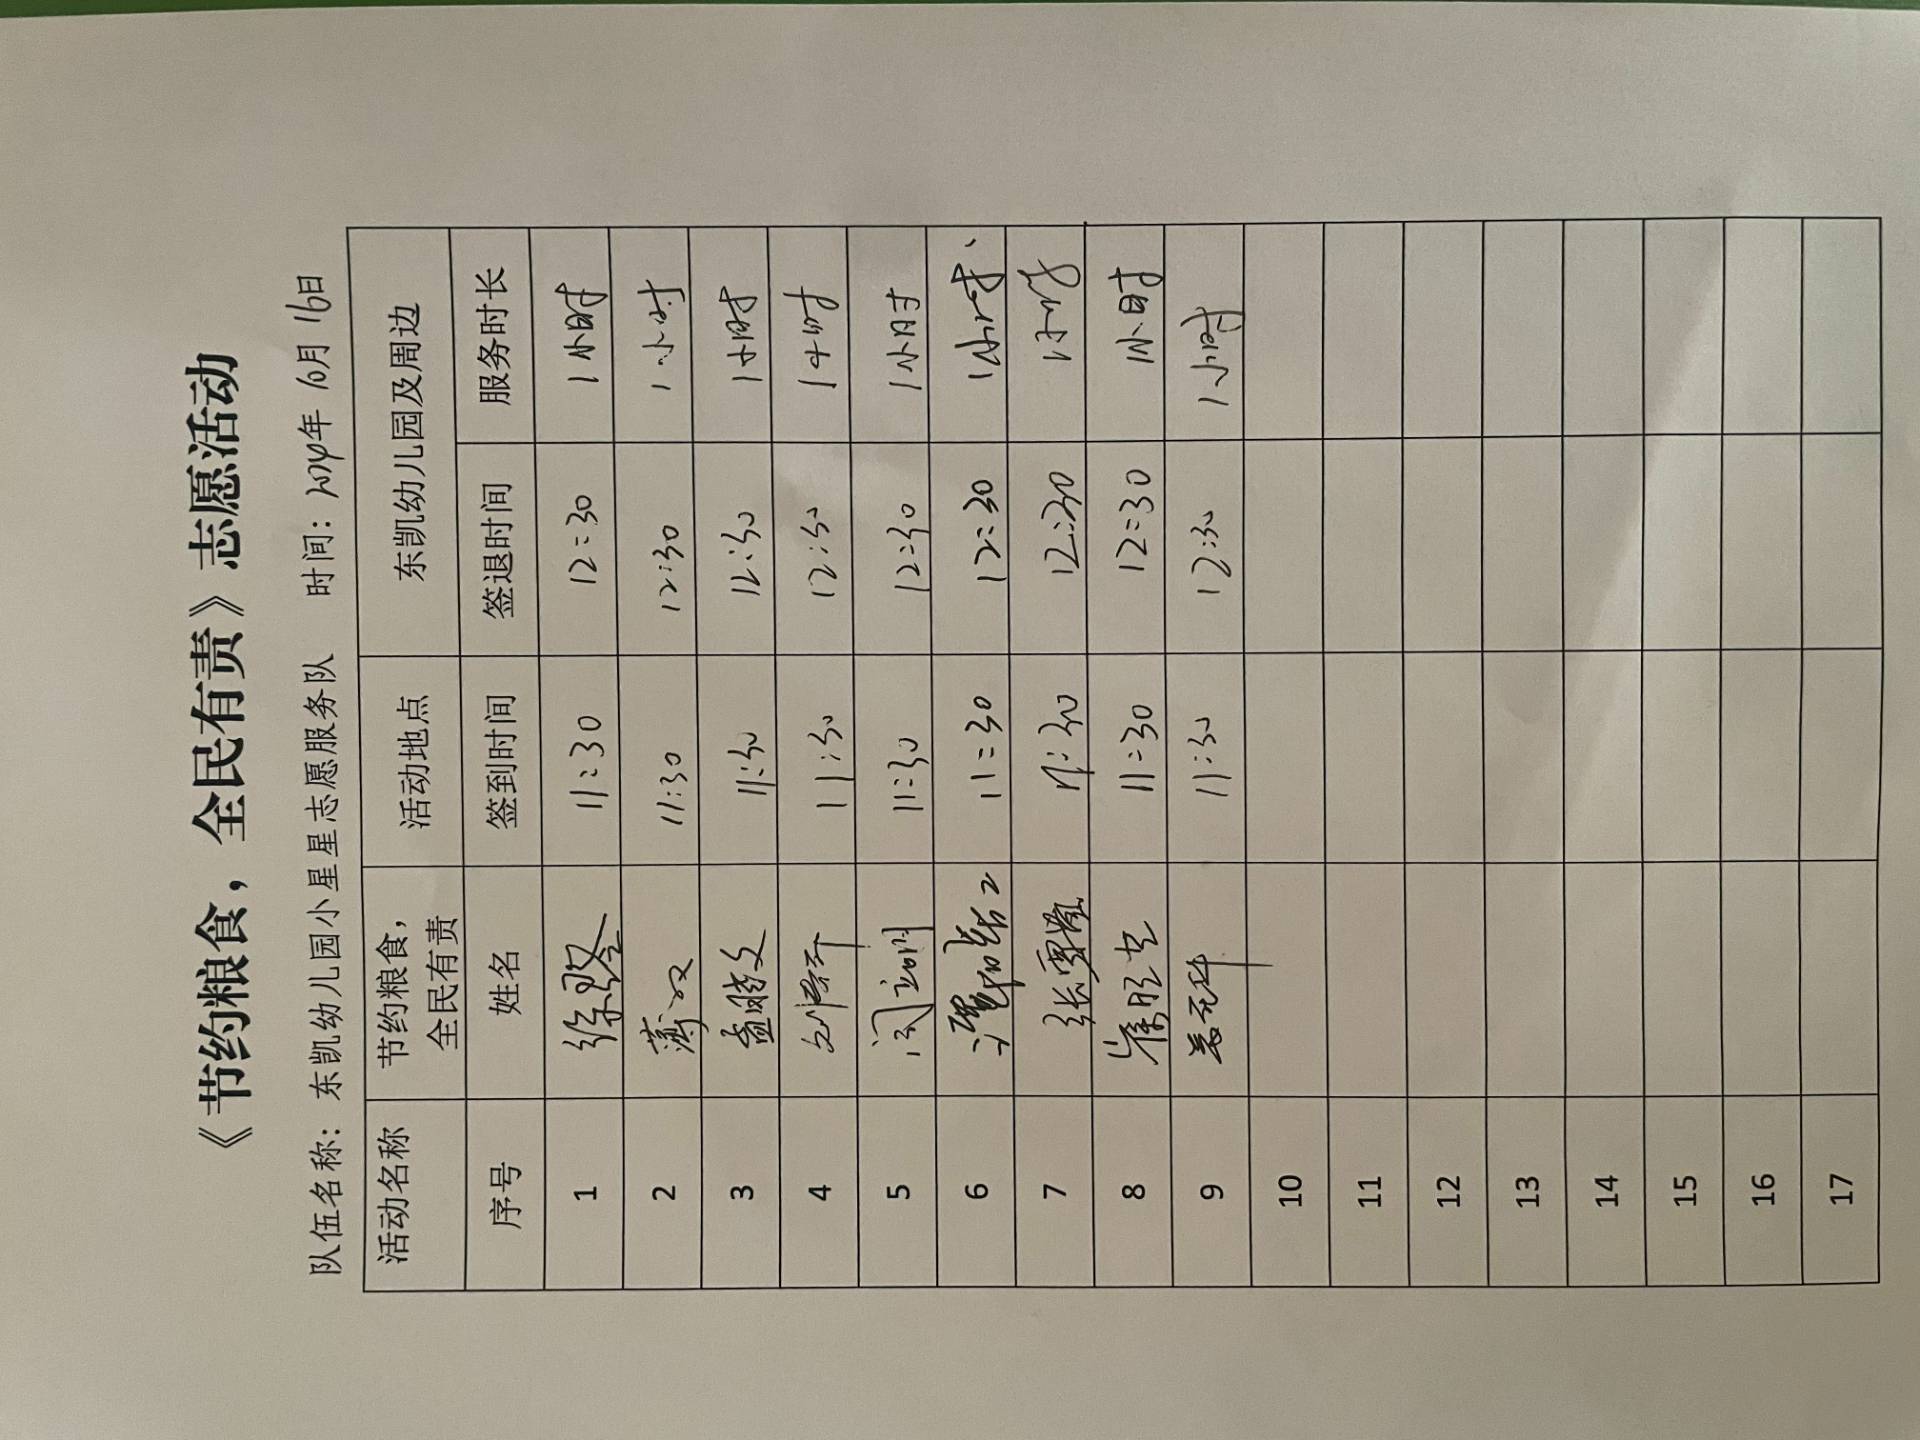 《节约粮食，全民有责》志愿活动
队伍名称：东凯幼儿园小星星志愿服务队 时间：2024年 10月 16日
活动名称 节约粮食，全民有责 活动地点 东凯幼儿园及周边
序号 姓名 签到时间 签退时间 服务时长
1 11:30 12:30 1小时
2 11:30 12:30 1小时
3 11:30 12:30 1小时
4 11:30 12:30 1小时
5 11:30 12:30 1小时
6 11:30 12:30 1小时
7 张 11:30 12:30 1小时
8 11:30 12:30 1小时
9 11:30 12:30 1小时
10
11
12
13
14
15
16
17